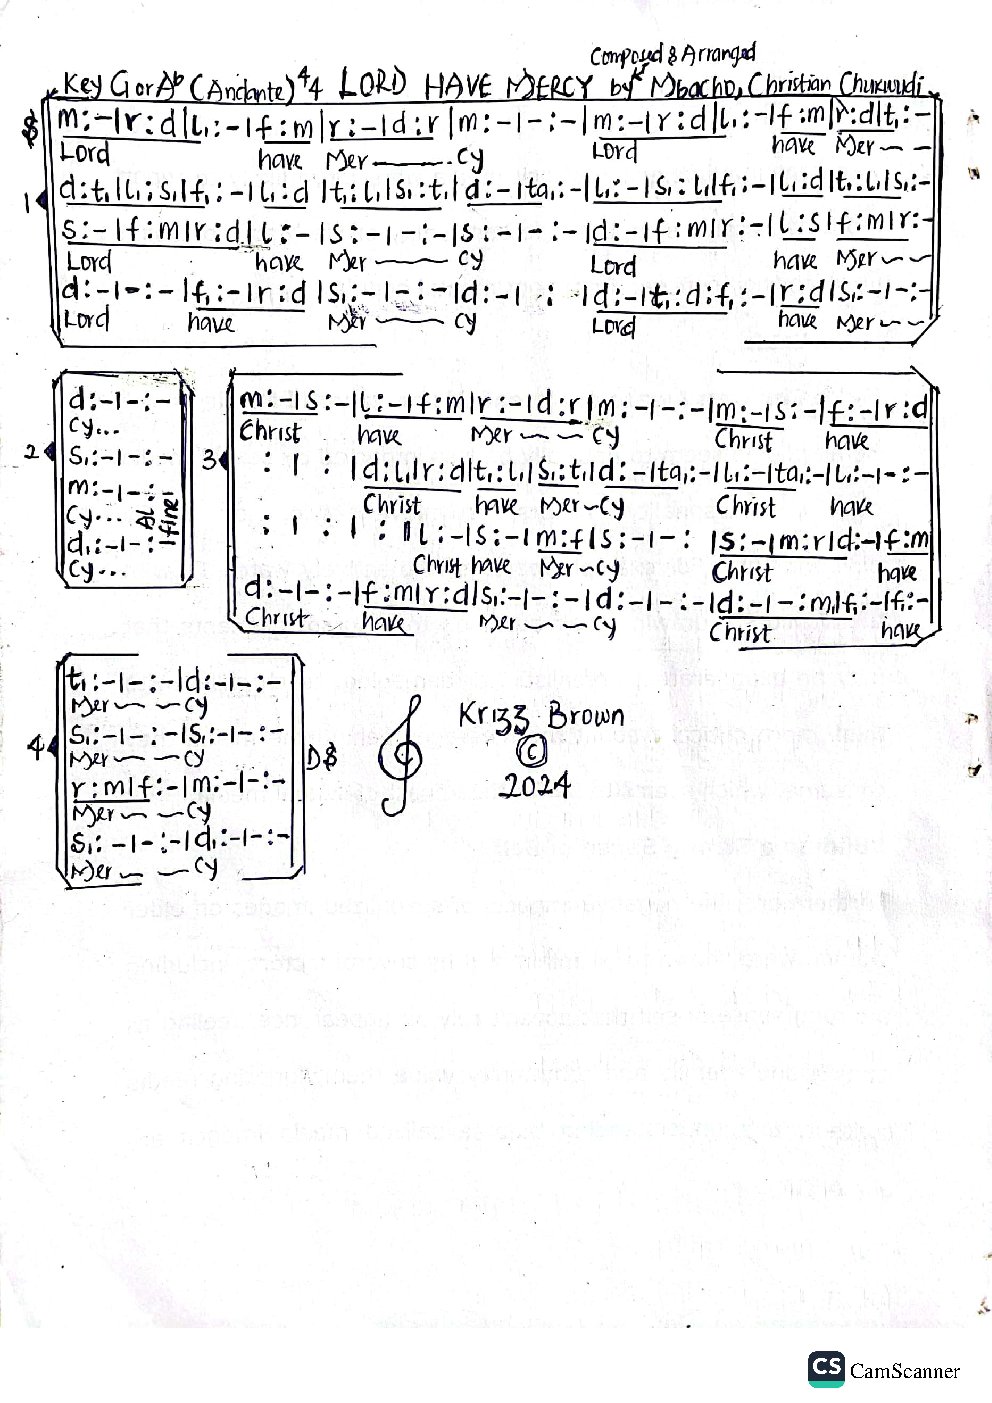 Composed & Arranged
Key G or Ab (Andante) 4/4 LORD HAVE MERCY by Mbacho, Christian Chukwudi
$ m:-|r:d|l₁:-|f:m|r:-|d:r|m:-|-:-|m:-|r:d|l₁:-|f:m|r:d|t₁:-
Lord have Mer cy Lord have Mer
1 d:t₁|l₁:s₁|f₁:-|l₁:d|t₁:l₁|s₁:t₁|d:-|ta₁:-|l₁:-|s₁:l₁|f₁:-|l₁:d|t₁:l₁|s₁:-
s:-|f:m|r:d|l:-|s:-|-:-|s:-|-:-|d:-|f:m|r:-|l:s|f:m|r:-
Lord have Mer cy Lord have Mer
d:-|-:-|f₁:-|r:d|s₁:-|-:-|d:-| : |d:-|t₁:d:f₁:-|r:d|s₁:-|-:-
Lord have Mer cy Lord have Mer
2 d:-|-:-
Cy...
s₁:-|-:-
m:-|-:-
Cy...
d₁:-|-:-
Cy...
AL fine
3 m:-|s:-|l:-|f:m|r:-|d:r|m:-|-:-|m:-|s:-|f:-|r:d
Christ have Mer cy Christ have
: | : |d:l₁|r:d|t₁:l₁|s₁:t₁|d:-|ta₁:-|l₁:-|ta₁:-|l₁:-|-:-
Christ have Mer cy Christ have
: | : | : |l:-|s:-|m:f|s:-|-: |s:-|m:r|d:-|f:m
Christ have Mer cy Christ have
d:-|-:-|f:m|r:d|s₁:-|-:-|d:-|-:-|d:-|-:m₁|f₁:-|f₁:-
Christ have Mer cy Christ have
4 t₁:-|-:-|d:-|-:-
Mer cy
s₁:-|-:-|s₁:-|-:-
Mer cy
r:m|f:-|m:-|-:-
Mer cy
s₁:-|-:-|d₁:-|-:-
Mer cy
D$
Krizz Brown
©
2024
CS CamScanner